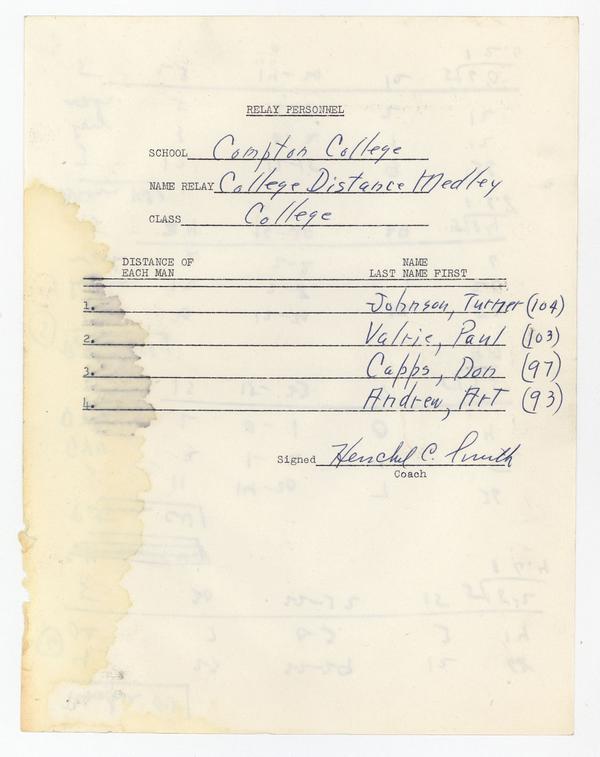 RELAY PERSONNEL
SCHOOL Compton College
NAME RELAY College Distance Medley
CLASS College
DISTANCE OF NAME
EACH MAN LAST NAME FIRST
1. Johnson, Turner (104)
2. Valrie, Paul (103)
3. Capps, Don (97)
4. Andrew, Art (93)
Signed Herschel C. Smith
Coach